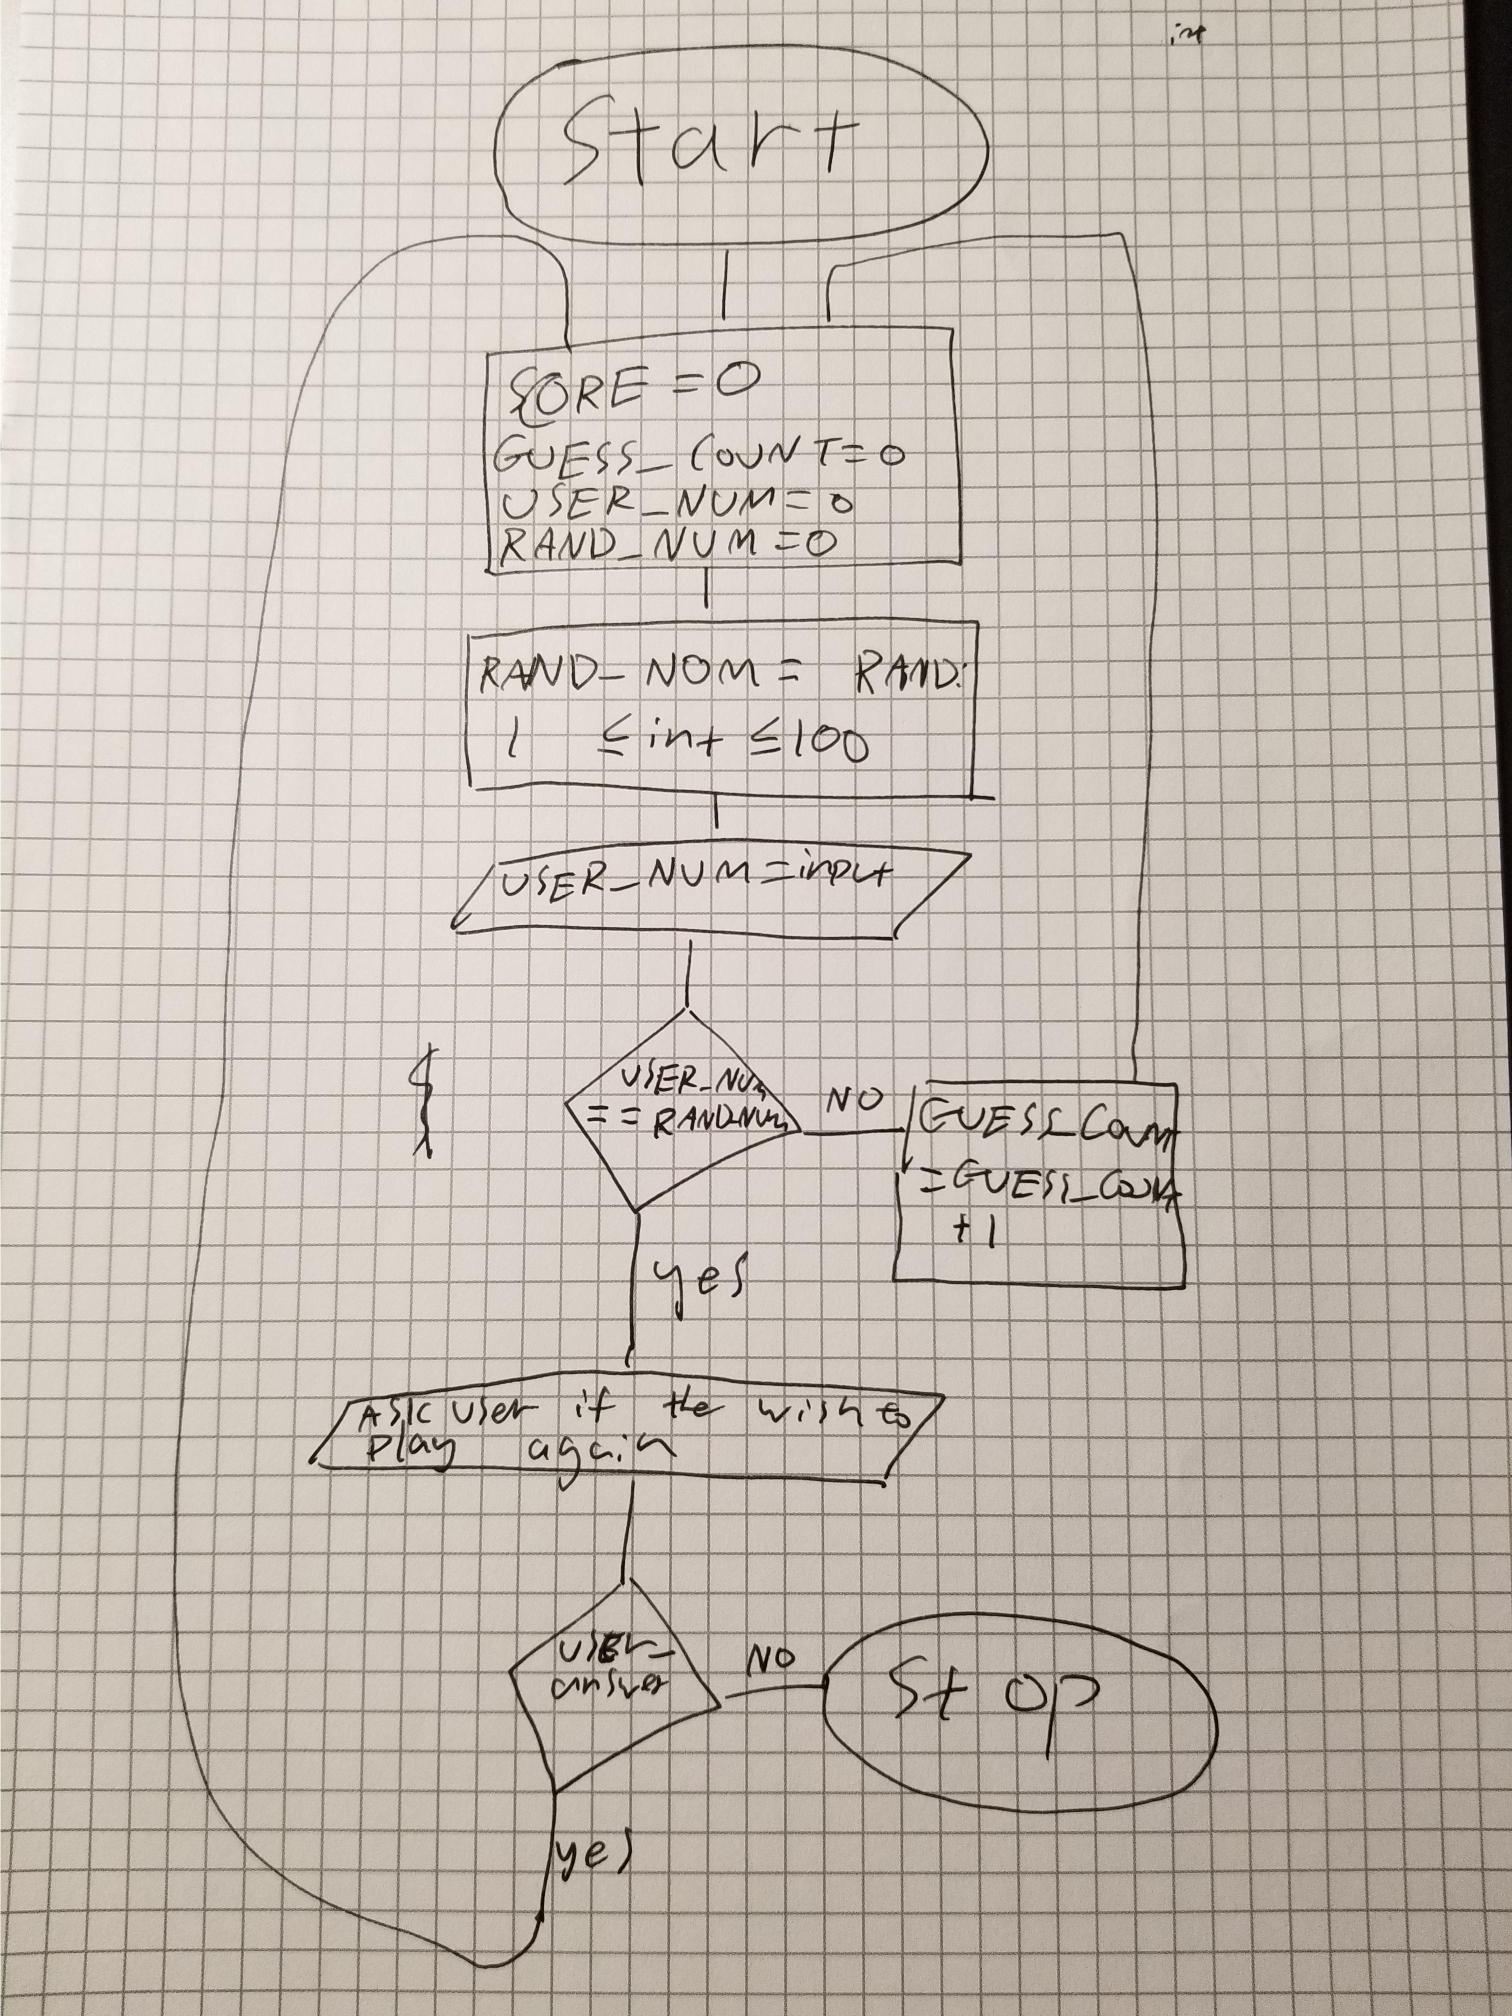 int
Start
SCORE = 0
GUESS_COUNT = 0
USER_NUM = 0
RAND_NUM = 0
RAND_NOM = RAND:
1 ≤ int ≤ 100
USER_NUM = input
USER_NUM
== RANDNUM
NO
GUESS_Count
= GUESS_Count
+ 1
yes
ASK user if the wish to
play again
USER_
answer
NO
Stop
yes